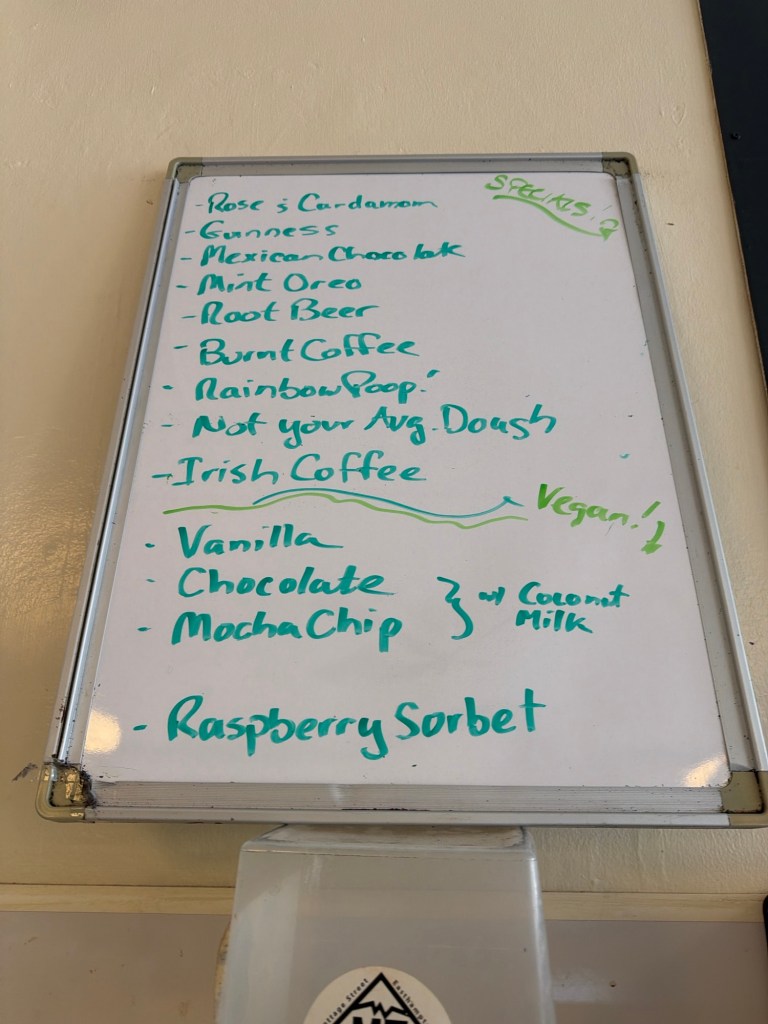 SPECIALS!
- Rose & Cardamom
- Gunness
- Mexican Chocolate
- Mint Oreo
- Root Beer
- Burnt Coffee
- Rainbow Poop!
- Not your Avg. Dough
- Irish Coffee
Vegan!
- Vanilla
- Chocolate
- Mocha Chip
} w/ Coconut
Milk
- Raspberry Sorbet
ttage Street Easthampt